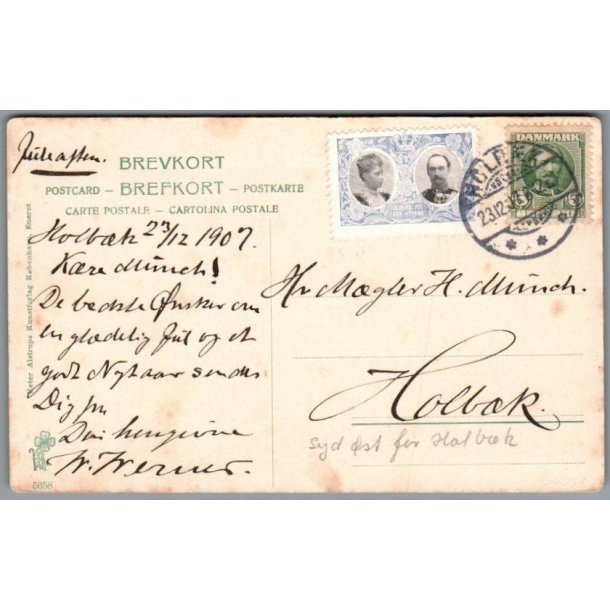 Juleaften.
BREVKORT
POSTCARD – BREFKORT – POSTKARTE
CARTE POSTALE – CARTOLINA POSTALE
Holbæk 23/12 1907.
Kære Munch!
De bedste Ønsker om
en glædelig Jul og et
godt Nytaar sendes
Dig fra
Din hengivne
W. Werner.
Peter Alstrups Kunstforlag København Eneret
5658
DANMARK
5
23.12.
Hr Mægler H. Munch.
Holbæk.
syd øst for Holbæk